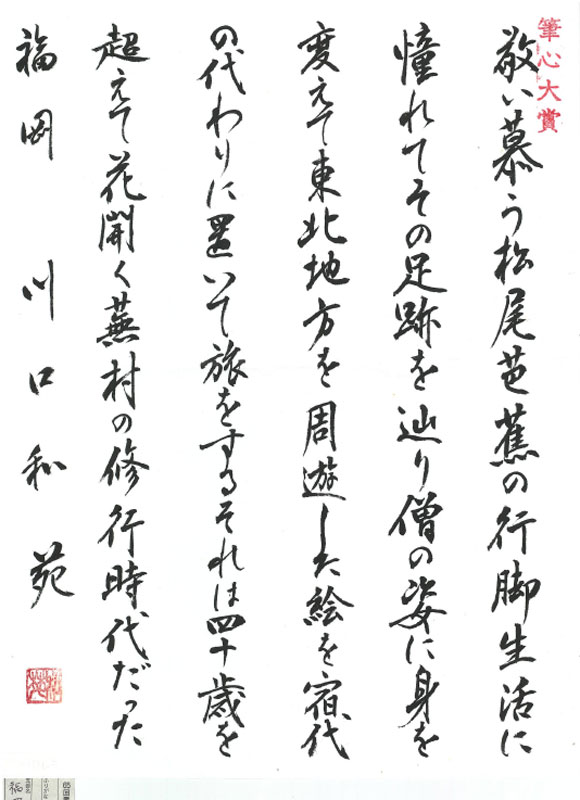 筆心大賞
敬い慕う松尾芭蕉の行脚生活に
憧れてその足跡を辿り僧の姿に身を
変えて東北地方を周遊した絵を宿代
の代わりに置いて旅をするそれは四十歳を
超えて花開く蕪村の修行時代だった
福岡 川口和苑